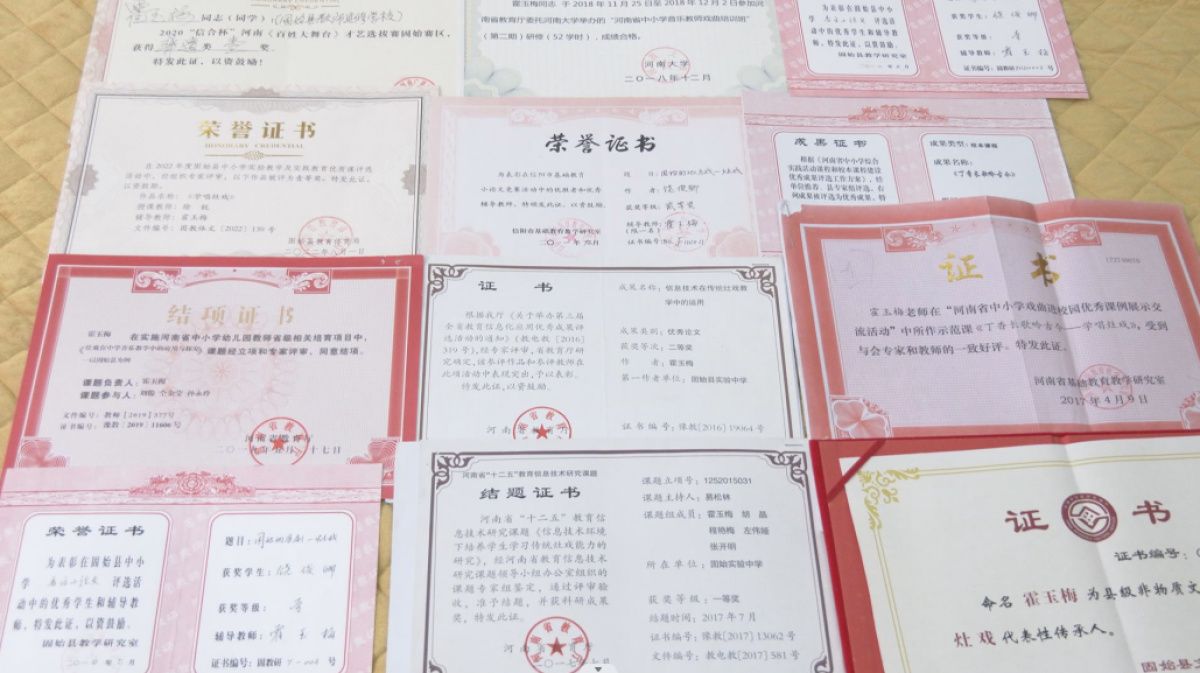 同志(同学)(固始县教师进修学校)
2020 "信合杯"河南《百姓大舞台》才艺选拔赛固始赛区,
获得 类 奖。
特发此证,以资鼓励!
霍玉梅同志 于 2018 年 11 月 25 日至 2018 年 12 月 2 日参加河
南省教育厅委托河南大学举办的"河南省中小学音乐教师戏曲培训班"
(第二期)研修(52 学时),成绩合格。
河南大学
二〇一八年十二月
动中的优秀学生和辅导教
师,特发此证,以资鼓励。
固始县教学研究室
获奖等级:
辅导教师:霍玉梅
荣誉证书
HONORARY CREDENTIAL
在 2022 年度固始县中小学实验教学及实践教育优质课评选
活动中,经组织专家评审,以下作品被评为壹等奖。特发此证,
以资鼓励。
作品名称:《学唱灶戏》
辅导教师:霍玉梅
文件编号:固教体文〔2022〕136 号
固始县教育体育局
二〇二二年八月一日
荣誉证书
为表彰在信阳市基础教育
小论文竞赛活动中的优胜者和优秀
辅导教师,特颁发此证,以资鼓励。
信阳市基础教育教学研究室
题 目:
作 者:饶俊卿
获奖等级:贰等奖
辅导教师:霍玉梅
(限一名)
成果证书
根据《河南省中小学综合
实践活动课程和校本课程建设
优秀成果评选工作方案》,经
单位推荐、县专家组评选,右
列成果被评选为优秀成果。特
成果类型:校本课程
成果名称:
《丁香长歌咏古今》
结项证书
霍玉梅
在实施河南省中小学幼儿园教师省级相关培育项目中,
课题经立项和专家评审,同意结项。
——以固始县为例
课题负责人:霍玉梅
课题参与人:刘俊 仝金莹 孙永玲
文件编号:教师〔2019〕377号
证书编号:豫教〔2019〕11606号
河南省教育厅
证 书
根据我厅《关于举办第三届
全省教育信息化应用优秀成果评
选活动的通知》(教电教〔2016〕
319 号),经专家评审,省教育厅研
究确定,该参评作品和参评教师在
此项活动中表现突出,予以表彰。
特发此证,以资鼓励。
河南省教育厅
成果名称:信息技术在传统灶戏教
学中的运用
成果类别:优秀论文
获奖等次:二等奖
作 者:霍玉梅
第一作者单位:固始县实验中学
证书编号:豫教〔2016〕19064 号
证 书
霍玉梅老师在"河南省中小学戏曲进校园优秀课例展示交
流活动"中所作示范课《丁香长歌咏古今——学唱灶戏》,受到
与会专家和教师的一致好评。特发此证。
河南省基础教育教学研究室
2017 年 4 月 9 日
荣誉证书
为表彰在固始县中小
学 评选活
动中的优秀学生和辅导教
师,特发此证,以资鼓励。
固始县教学研究室
题目:
获奖学生:饶俊卿
获奖等级:
辅导教师:霍玉梅
证书编号:固教研
河南省"十二五"教育信息技术研究课题
结题证书
河南省"十二五"教育信
息技术研究课题《信息技术环境
下培养学生学习传统灶戏能力的
研究》,经河南省教育信息技术
研究课题领导小组办公室组织的
课题专家组鉴定,通过评审验
收,准予结题,并获科研成果
奖,特发此证。
河南省教育厅
二〇一七年七月
课题立项号:1252015031
课题主持人:易松林
课题组成员:霍玉梅 胡晶
程艳梅 左伟娅
张开明
所在单位:固始实验中学
获奖等级:一等奖
结题时间:2017 年 7 月
证书编号:豫教〔2017〕13062 号
文件编号:教电教〔2017〕581 号
证 书
证书编号:
命名 霍玉梅 为县级非物质文
灶戏代表性传承人。